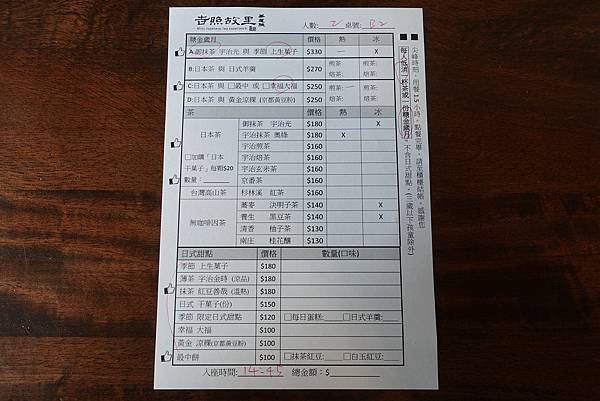 吉照故里
人數: 2 桌號: B2
糖金歲月 價格 熱 冰
A:御抹茶 宇治光 與 季節 上生菓子 $330 一 X
B:日本茶 與 日式羊羹 $270 煎茶: 焙茶: 煎茶: 焙茶:
C:日本茶 與 □最中 或 □幸福大福 $250 煎茶: 一 焙茶: 煎茶: 焙茶:
D:日本茶 與 黃金涼粿(京都黃豆粉) $250 煎茶: 焙茶: 煎茶: 焙茶:
茶 價格 熱 冰
日本茶
□加購「日本
干菓子」每顆$20
數量:
御抹茶 宇治光 $180 X
宇治抹茶 奧綠 $180 X
宇治煎茶 $160
宇治焙茶 $160
宇治玄米茶 $160
京番茶 $160
台灣高山茶 杉林溪 紅茶 $160
無咖啡因茶
蕎麥 決明子茶 $140 X
養生 黑豆茶 $140 X
清香 柚子茶 $130
南庄 桂花釀 $130
日式甜點 價格 數量(口味)
季節 上生菓子 $180
薄茶 宇治金時 (涼品) $180
抹茶 紅豆善哉 (溫熱) $180
日式 干菓子(份) $150
季節 限定日式甜點 $120 □每日蛋糕: □日式羊羹:
幸福 大福 $100
黃金 涼粿(京都黃豆粉) $100
最中餅 $100 □抹茶紅豆: □白玉紅豆:
入座時間: 14:45 總金額: $
■■尖峰時刻，用餐1.5小時，點餐完畢，請至櫃檯結帳，感謝您
每人低消一杯茶或一份糖金歲月，不含日式甜點。(三歲以下孩童除外)